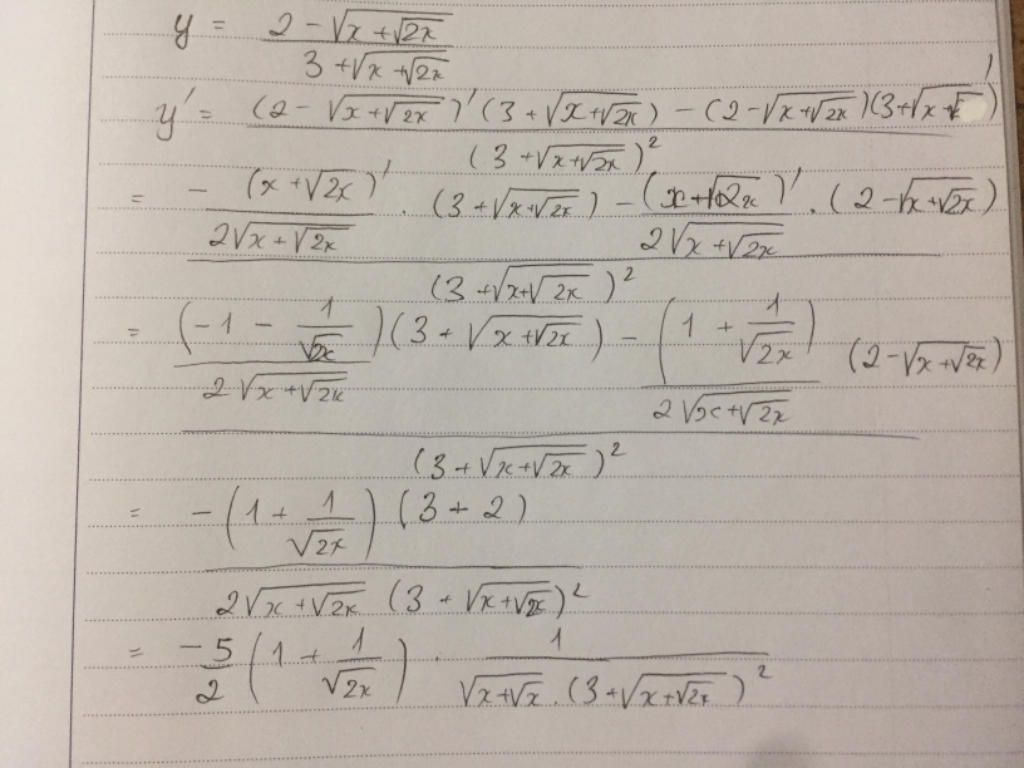 y = \frac{2 - \sqrt{x + \sqrt{2x}}}{3 + \sqrt{x + \sqrt{2x}}}
y' = \frac{(2 - \sqrt{x + \sqrt{2x}})' (3 + \sqrt{x + \sqrt{2x}}) - (2 - \sqrt{x + \sqrt{2x}})(3 + \sqrt{x + \sqrt{x}})'}{(3 + \sqrt{x + \sqrt{2x}})^2}
= \frac{-\frac{(x + \sqrt{2x})'}{2\sqrt{x + \sqrt{2x}}} \cdot (3 + \sqrt{x + \sqrt{2x}}) - \frac{(x + \sqrt{2x})'}{2\sqrt{x + \sqrt{2x}}} \cdot (2 - \sqrt{x + \sqrt{2x}})}{(3 + \sqrt{x + \sqrt{2x}})^2}
= \frac{\frac{(-1 - \frac{1}{\sqrt{2x}})}{2\sqrt{x + \sqrt{2x}}} (3 + \sqrt{x + \sqrt{2x}}) - \frac{(1 + \frac{1}{\sqrt{2x}})}{2\sqrt{x + \sqrt{2x}}} (2 - \sqrt{x + \sqrt{2x}})}{(3 + \sqrt{x + \sqrt{2x}})^2}
= \frac{-(1 + \frac{1}{\sqrt{2x}})(3 + 2)}{2\sqrt{x + \sqrt{2x}} (3 + \sqrt{x + \sqrt{2x}})^2}
= \frac{-5}{2} (1 + \frac{1}{\sqrt{2x}}) \cdot \frac{1}{\sqrt{x + \sqrt{x}} \cdot (3 + \sqrt{x + \sqrt{2x}})^2}